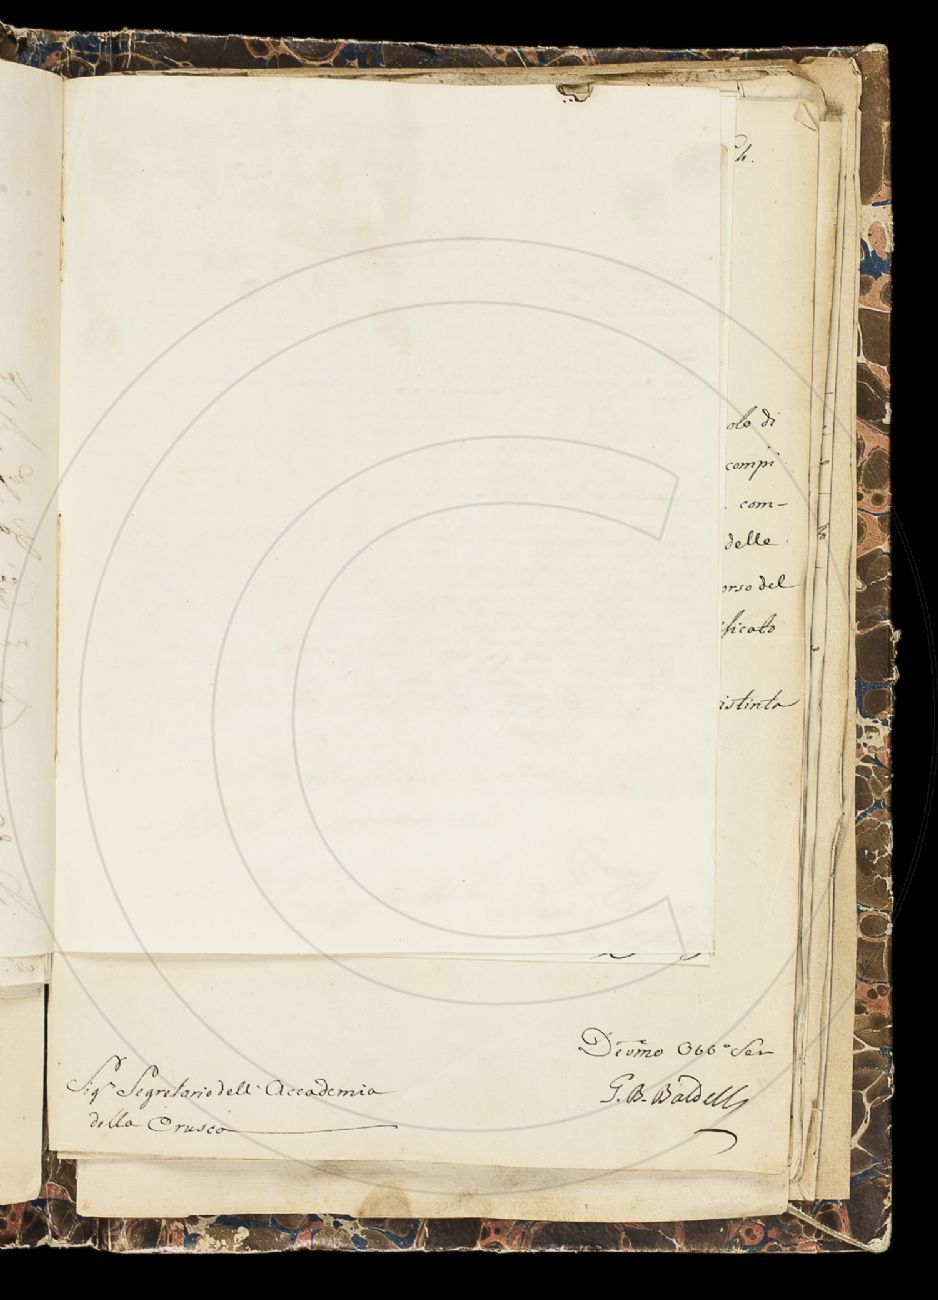 olo di
compi
com-
delle
orso del
ificato
istinto
Devmo Obbo Ser
G. B. Baldelli
Sigr Segretario dell' Accademia
della Crusca